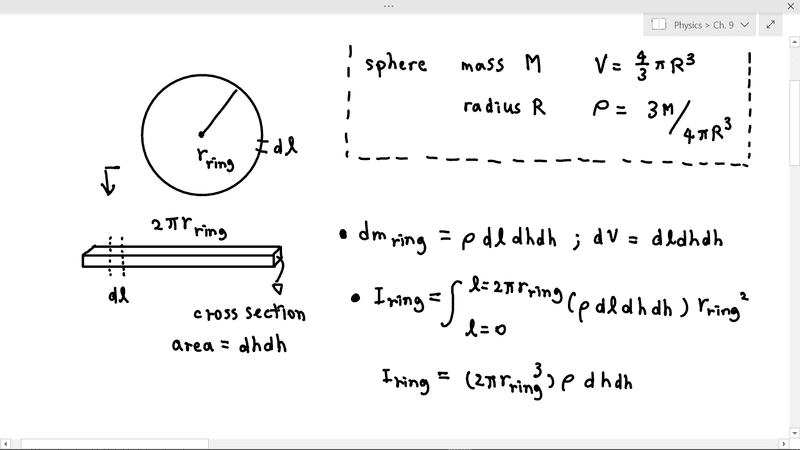 Physics > Ch. 9
sphere mass M V = 4/3 πR³
radius R ρ = 3M/4πR³
r_ring
dl
2πr_ring
dl
cross section
area = dhdh
• dm_ring = ρ dl dh dh ; dV = dl dh dh
• I_ring = ∫_{l=0}^{l=2πr_ring} (ρ dl dh dh) r_ring²
I_ring = (2πr_ring³) ρ dh dh